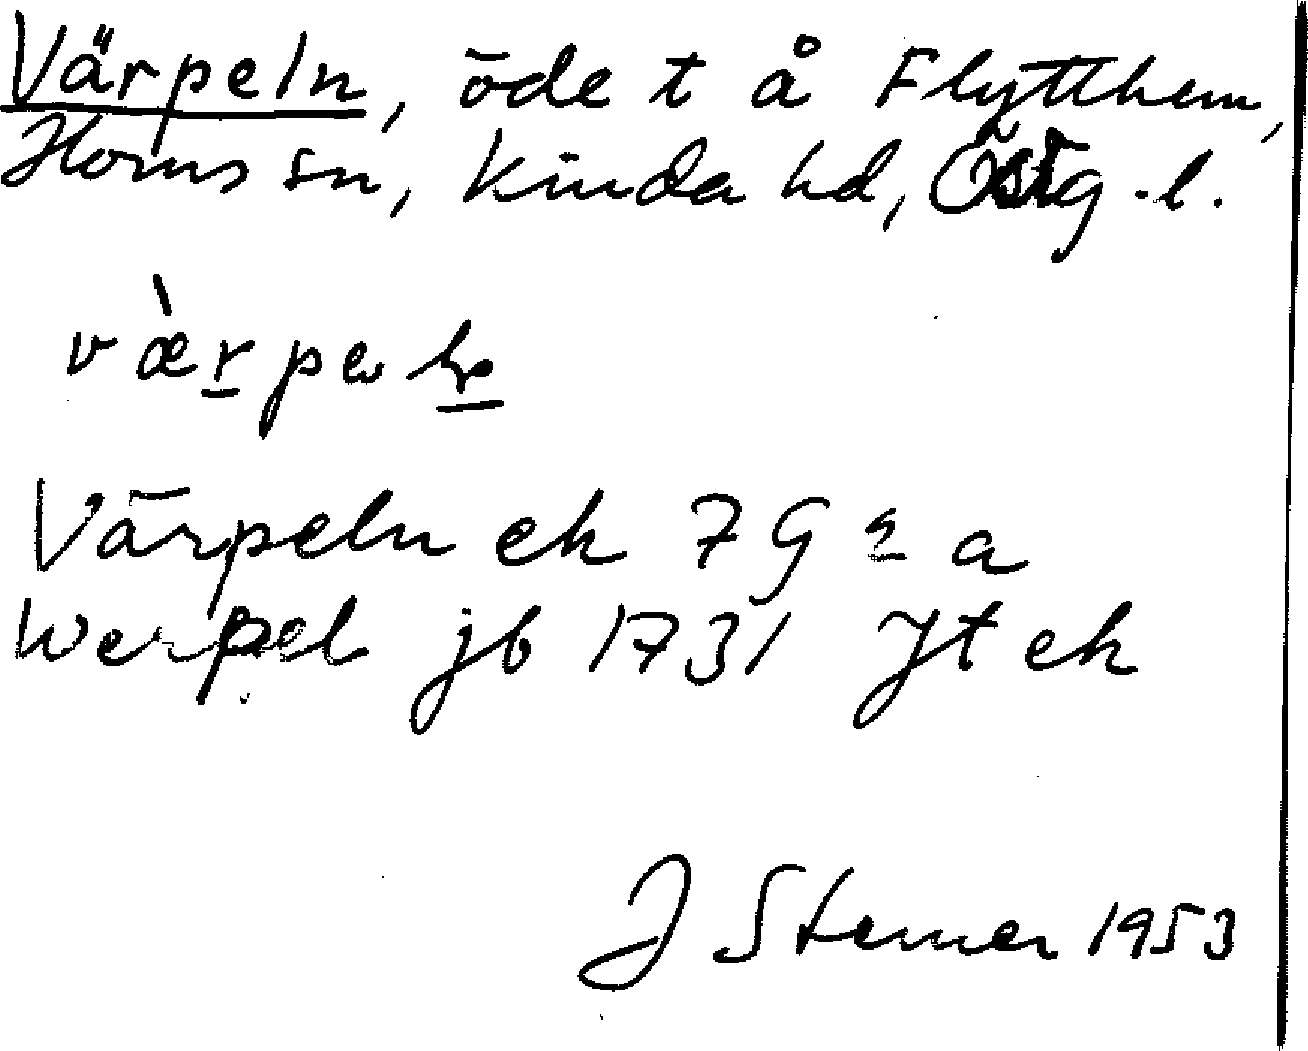 Värpeln, öde t å Flytthem,
Horns sn, Kinda hd, Östg.l.
Värpeln ek 7 G 2 a
Werpel jb 1731 Jt ek
J Sterner 1953